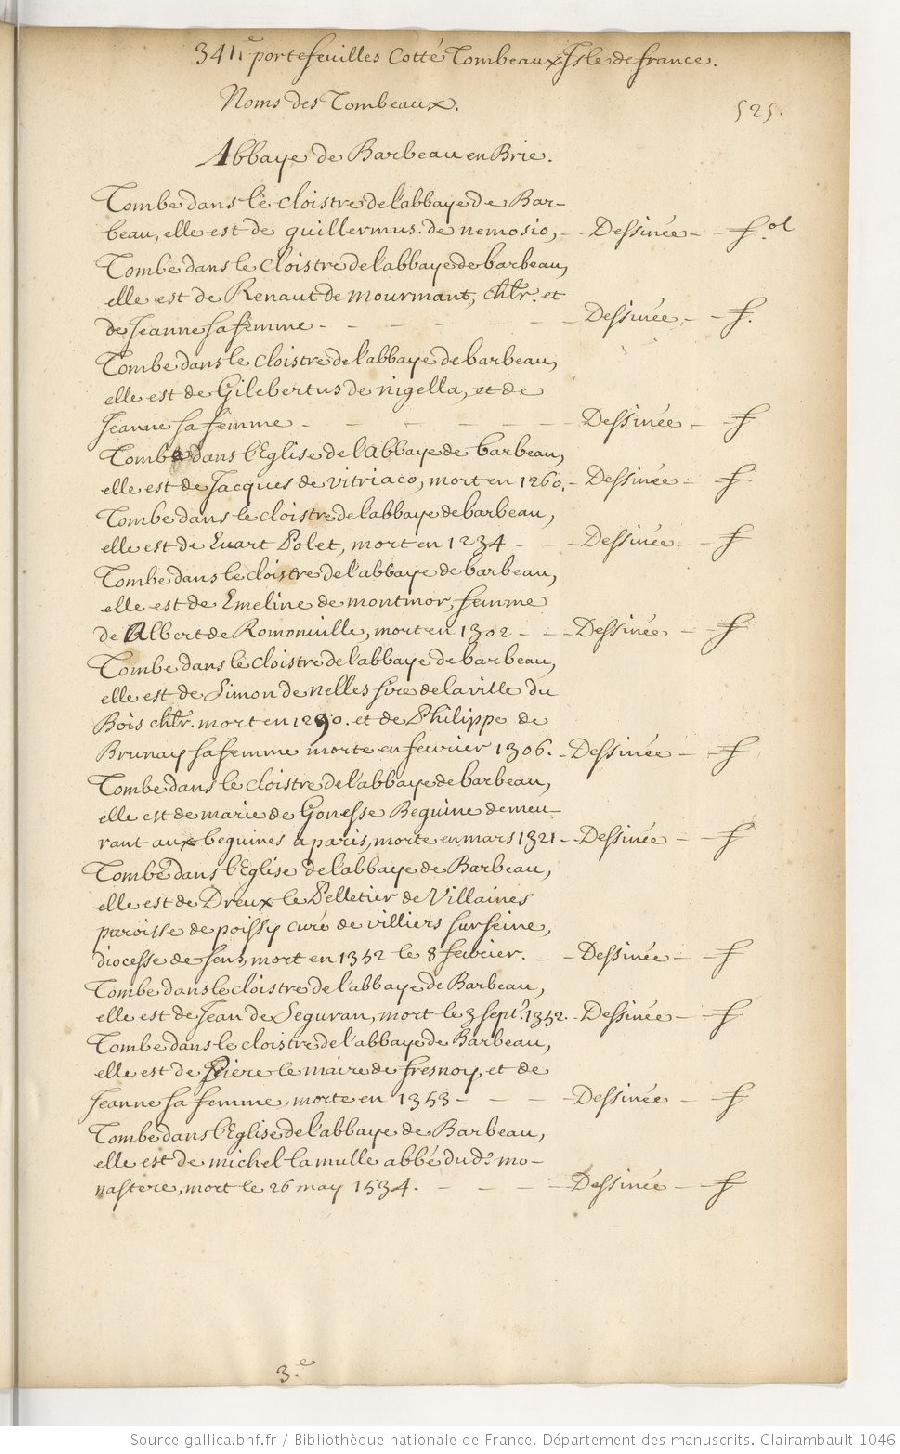 3411.e portefeuilles Cotté Tombeaux Isle de france.
Noms des Tombeaux.
525.
Abbaye de Barbeau en Brie.
Tombe dans le cloistre de l'abbaye de Bar-
beau, elle est de guillermus de nemosio, - - Dessinée - - f.ol
Tombe dans le Cloistre de l'abbaye de barbeau,
elle est de Renaut de mourmant, chlr. et
de Jeanne sa femme - - - - - - Dessinée - - f.
Tombe dans le cloistre de l'abbaye de barbeau,
elle est de Gilebertus de nigella, et de
Jeanne sa femme - - - - - - Dessinée - f
Tombe dans l'Eglise de l'abbaye de barbeau,
elle est de Jacques de vitriaco, mort en 1260. - Dessinée - f.
Tombe dans le cloistre de l'abbaye de barbeau,
elle est de Euart Polet, mort en 1234 - - Dessinée - f
Tombe dans le cloistre de l'abbaye de barbeau,
elle est de Emeline de montmor, femme
de Albert de Romonuille, mort en 1302 - - - Dessinée - f
Tombe dans le cloistre de l'abbaye de barbeau,
elle est de Simon de nelles sire de la ville du
Bois chlr. mort en 1290. et de Philippe de
Brunay sa femme morte en feurier 1306. - Dessinée - f
Tombe dans le cloistre de l'abbaye de barbeau,
elle est de marie de Gonesse Beguine demeu-
rant aux beguines a paris, morte en mars 1321 - - Dessinée - f
Tombe dans l'Eglise de l'abbaye de Barbeau,
elle est de Dreux le Pelletier de Villaines
paroisse de poissy curé de villiers sur seine,
diocesse de sens, mort en 1352 le 8 feurier. - Dessinée - f
Tombe dans le cloistre de l'abbaye de Barbeau,
elle est de Jean de Seguran, mort le 3 sept.e 1352. - Dessinée - f
Tombe dans le cloistre de l'abbaye de Barbeau,
elle est de Piere le maire de fresnoy, et de
Jeanne sa femme, morte en 1353 - - - - Dessinée - f
Tombe dans l'Eglise de l'abbaye de Barbeau,
elle est de michel lamulle abbé dud. mo-
nastere, mort le 26 may 1534. - - - - Dessinée - f
3.e
Source gallica.bnf.fr / Bibliothèque nationale de France. Département des manuscrits. Clairambault 1046